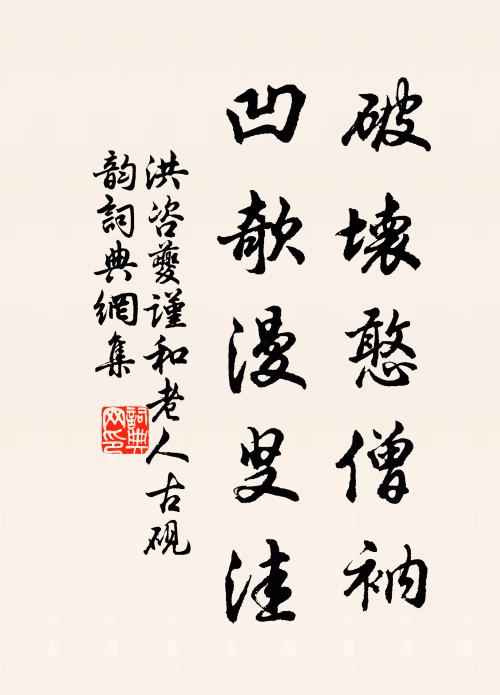 破壞憨僧衲
凹欹漫叟洼
洪咨夔謹和老人古硯
韵詞典網集
詞典网印